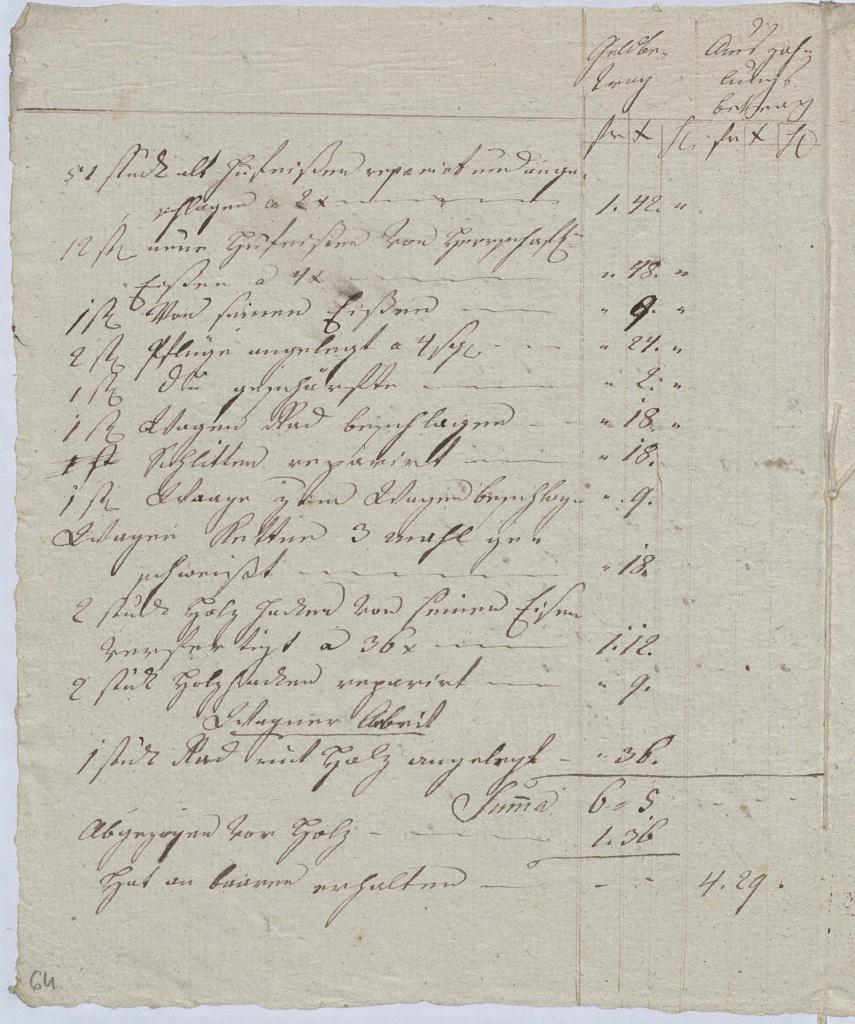 Geldbe-
trag
Auszah-
lungs
betrag
fr x hl fr x hl
51 stück alt Hufeißen reparirt und ange-
schlagen a 2x 1. 42. "
12 st neue Hufeißen von Herrschaft-
Eißen a 4x " 48. "
1 st Von seinen Eißen " 9. "
2 st Pflüge angelegt a 4 " 24. "
1 st geschärfte " 2. "
1 st Wagen Rad beschlagen " 18. "
1 st Schlitten reparirt " 18.
1 st Waage zum Wagen beschlag " 9.
Wagen Ketten 3 mahl ge-
schweißt " 18.
2 stück Holz Hacken von seinen Eisen
verfertigt a 36x 1. 12.
2 stück Holzhacken reparirt " 9.
Wagner Arbeit
1 stück Rad mit Holz angelegt " 36.
Summa 6 " 5
Abgezogen vor Holz 1. 36
Hat an baaren erhalten 4. 29.
64